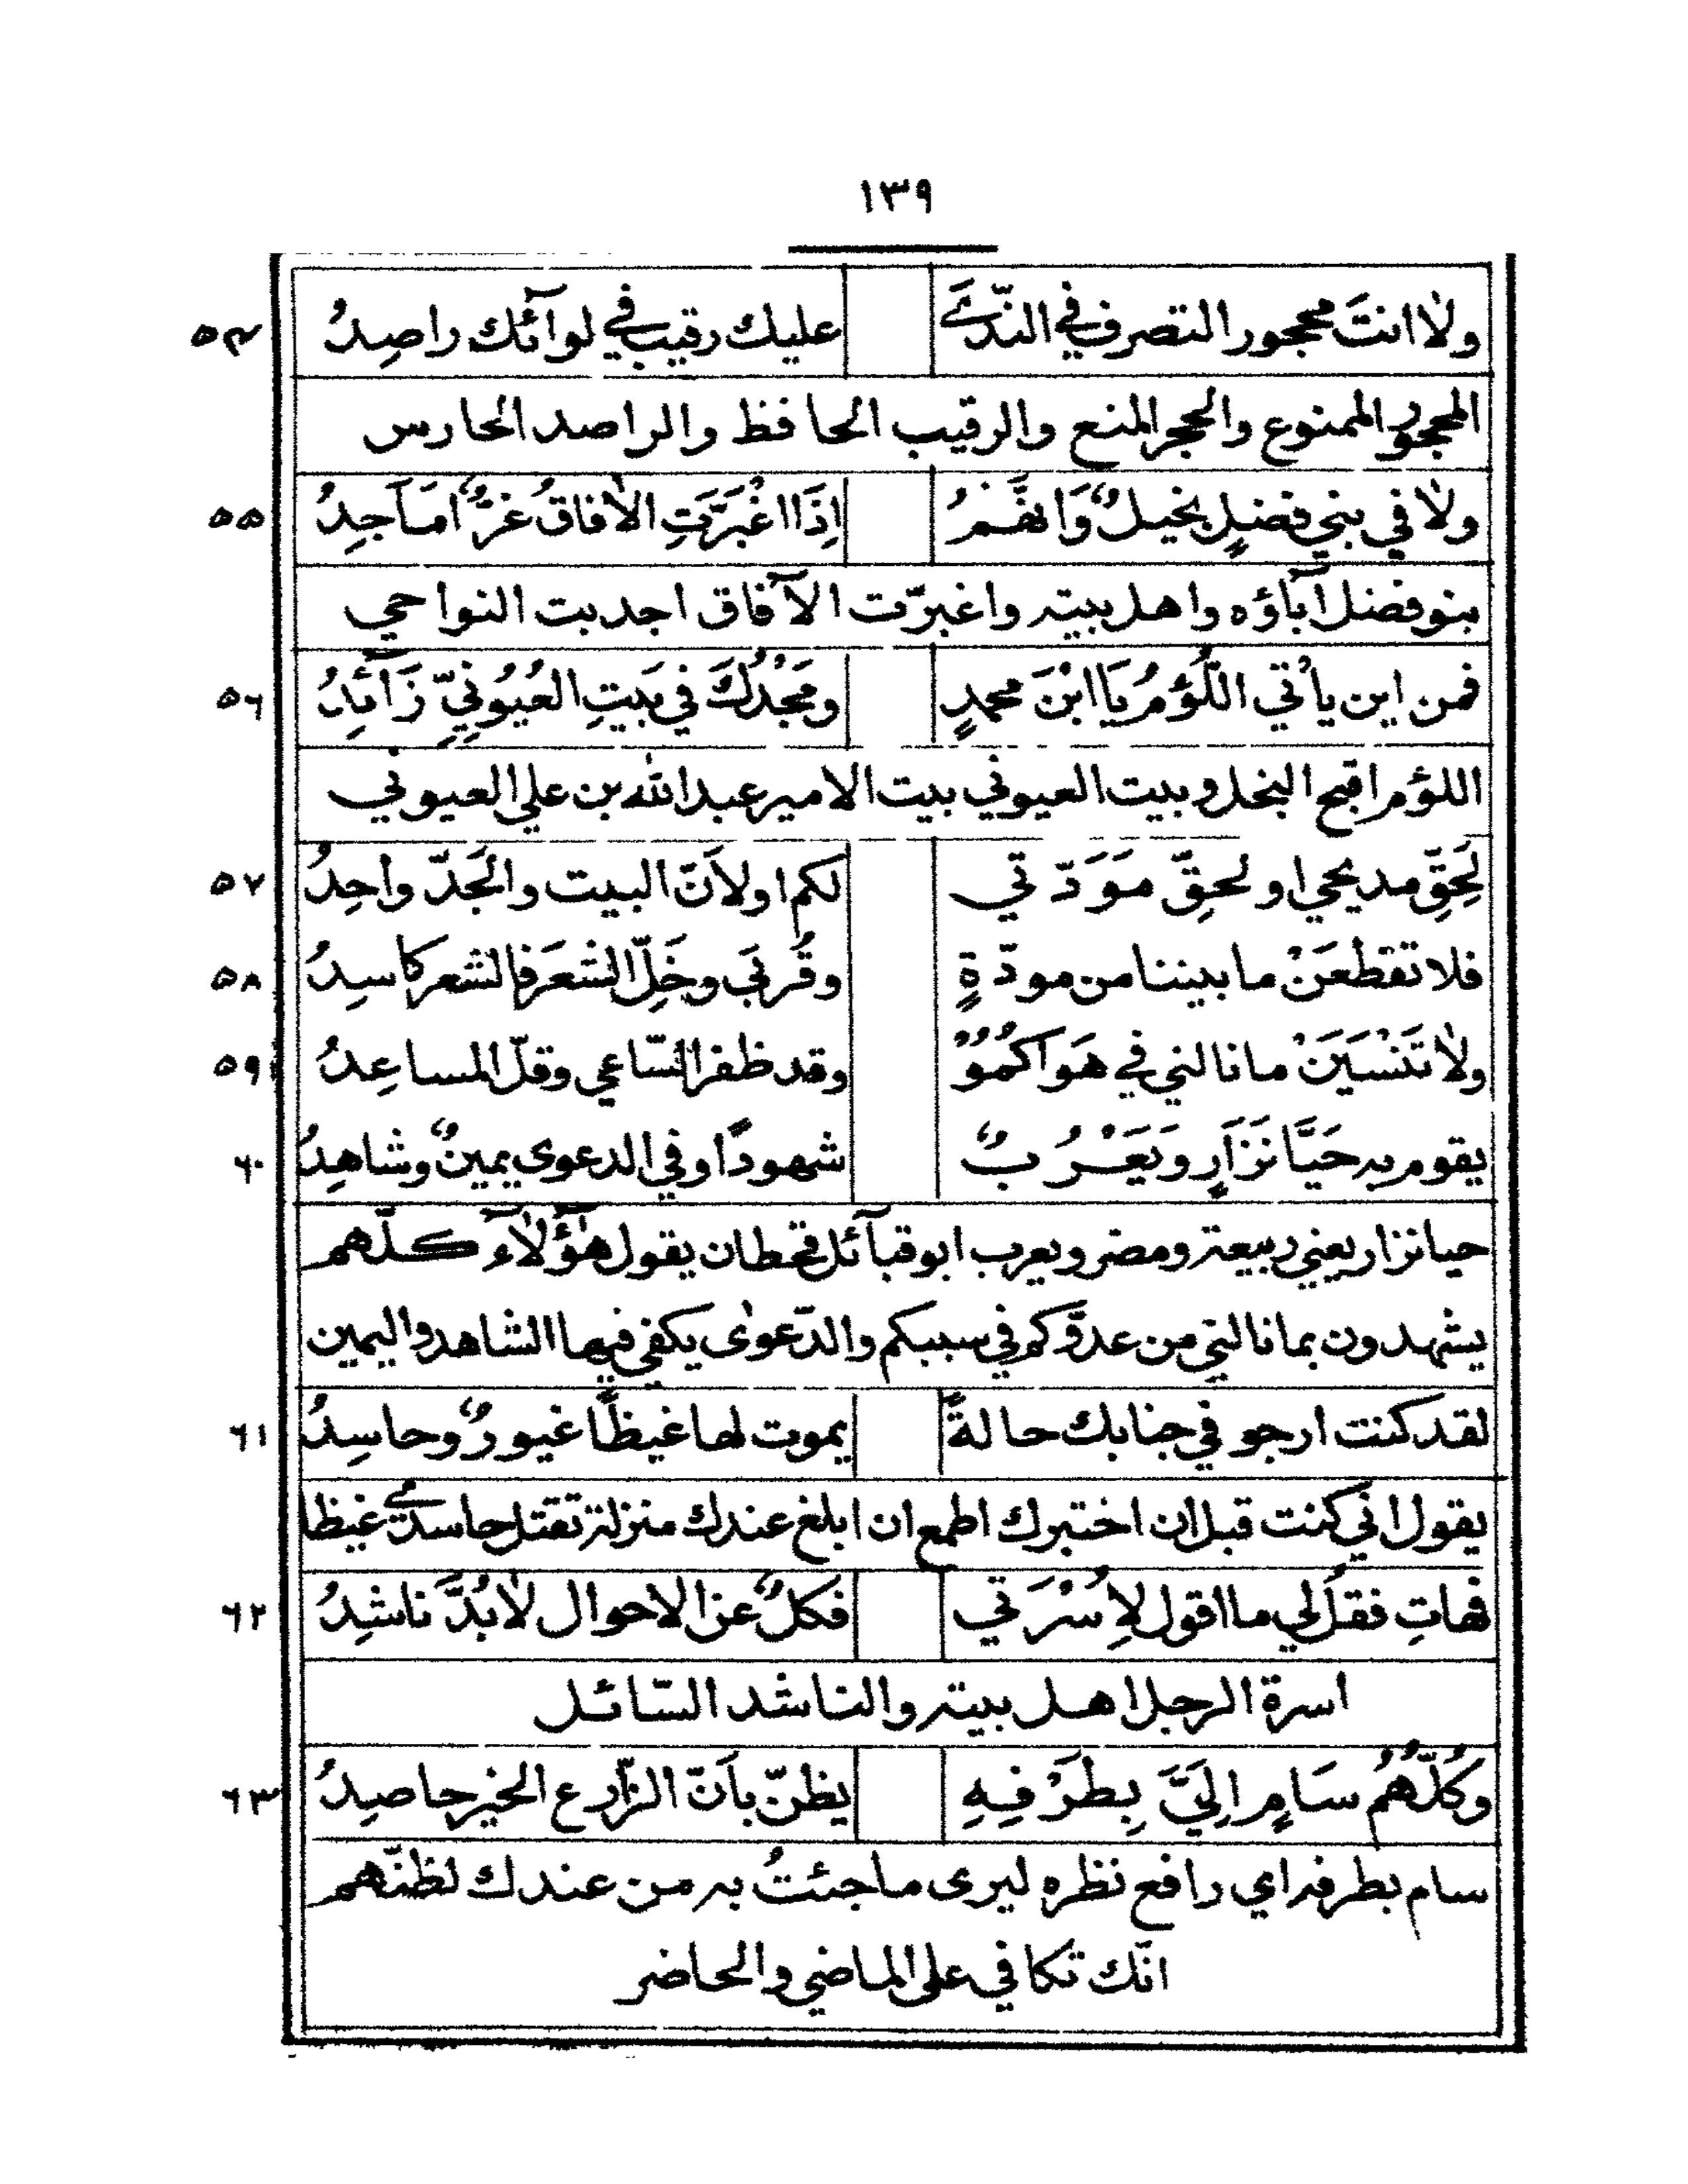 ١٣٩
ولا انتَ محجور التصرف في الندّےَ عليك رقيب في لوآئك راصِدُ ٥٤
المحجور الممنوع والحجر المنع والرقيب الحافظ والراصد الحارس
ولا في بني فضلٍ بخيلٌ وَانّهُمْ اِذَا اغْبَرَّتِ الافاقُ غرٌّ امَاجِدُ ٥٥
بنو فضل آباؤه واهل بيته واغبرّت الآفاق اجدبت النواحي
فمن اين يأتي اللُّؤمُ يَا ابْنَ محمدٍ ومَجْدُكَ في بَيتِ العُيُونِيِّ زَآئِدُ ٥٦
اللؤم اقبح البخل وبيت العيوني بيت الامير عبد الله بن علي العيوني
لَحِقِّ مديحي او لحقِّ مَوَدّتي لكم اولاَنّ البيت والجَدّ واحِدُ ٥٧
فلا تقطعَنْ ما بيننا من مودّةٍ وقُربَى وخَلِّ الشعَر فالشعر كاسِدُ ٥٨
ولا تَنْسَيَنْ ما نالني في هَوَاكُمُوْ وقد ظفر السّاعي وقلّ المساعِدُ ٥٩
يقوم به حَيَّا نَزَارٍ وَيَعْرُبٌ شهودًا وفي الدعوى يمينٌ وشاهِدُ ٦٠
حيا نزار يعني ربيعة ومضر ويعرب ابو قبآئل قحطان يقول هٰؤلآء كلّهم
يشهدون بما نالني من عدوّكم في سببكم والدّعوٰى يكفي فيها الشاهد واليمين
لقد كنت ارجو في جنابك حالةً يموت لها غيظًا غيورٌ وحاسِدُ ٦١
يقول اني كنت قبل ان اختبرك اطمع ان ابلغ عندك منزلة تقتل حاسدےّ غيظا
فهاتِ فقل لي ما اقول لِاُسْرَتي فكلٌ عن الاحوال لابُدَّ ناشِدُ ٦٢
اسرة الرجل اهل بيته والناشد السّائل
وكُلُّهُمُ سَامٍ اِلَيَّ بِطَرْفِهِ يظنّ بأنّ الزّارع الخير حاصِدُ ٦٣
سام بطرفه اي رافع نظره ليرى ما جئتُ به من عندك لظنّهم
انّك تكافي على الماضي والحاضر